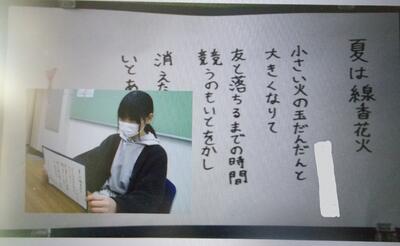 夏は線香花火
小さい火の玉だんだんと
大きくなりて
友と落ちるまでの時間
競うのもいとをかし
消えた
いとあ